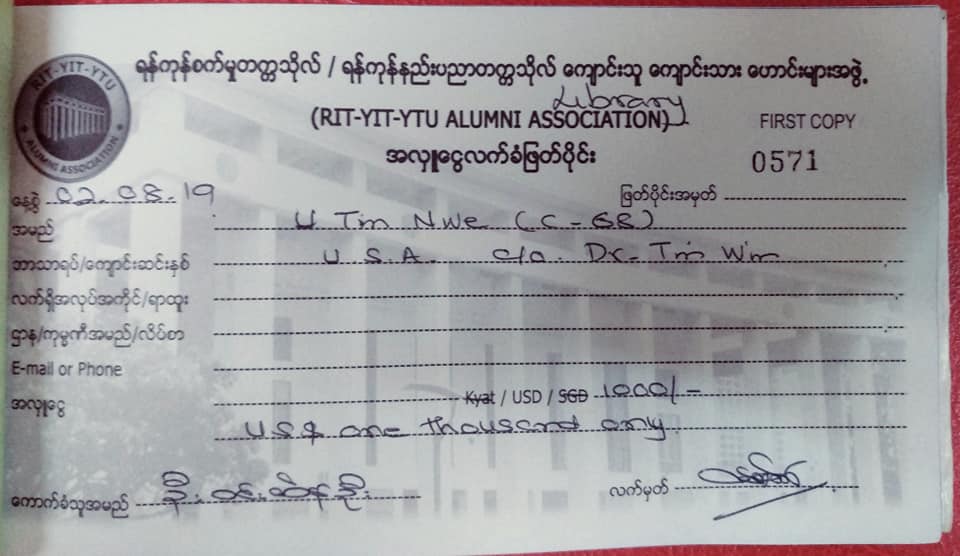 RIT-YIT-YTU
ALUMNI ASSOCIATION
ရန်ကုန်စက်မှုတက္ကသိုလ် / ရန်ကုန်နည်းပညာတက္ကသိုလ် ကျောင်းသူ ကျောင်းသား ဟောင်းများအဖွဲ့
Library
(RIT-YIT-YTU ALUMNI ASSOCIATION) FIRST COPY
အလှူငွေလက်ခံဖြတ်ပိုင်း 0571
နေ့စွဲ 02.08.19 ဖြတ်ပိုင်းအမှတ်
အမည် U Tin Nwe (C-68)
ဘာသာရပ်/ကျောင်းဆင်းနှစ် U S A. c/o. Dr. Tin Win
လက်ရှိအလုပ်အကိုင်/ရာထူး
ဌာန/ကုမ္ပဏီအမည်/လိပ်စာ
E-mail or Phone
အလှူငွေ Kyat / USD / SGD 1000/-
US$ one thousand only.
ကောက်ခံသူအမည် လက်မှတ်